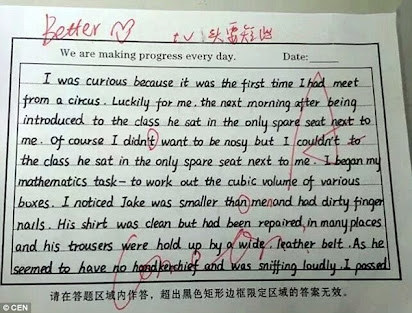 Better
We are making progress every day. Date:
I was curious because it was the first time I had meet
from a circus. Luckily for me. the next morning after being
introduced to the class he sat in the only spare seat next to
me. Of course I didn't want to be nosy but I couldn't to
the class he sat in the only spare seat next to me. I began my
mathematics task- to work out the cubic volume of various
boxes. I noticed Jake was smaller than me and had dirty finger
nails. His shirt was clean but had been repaired, in many places
and his trousers were hold up by a wide leather belt. As he
seemed to have no handkerchief and was sniffing loudly. I passed
请在答题区域内作答，超出黑色矩形边框限定区域的答案无效。
© CEN